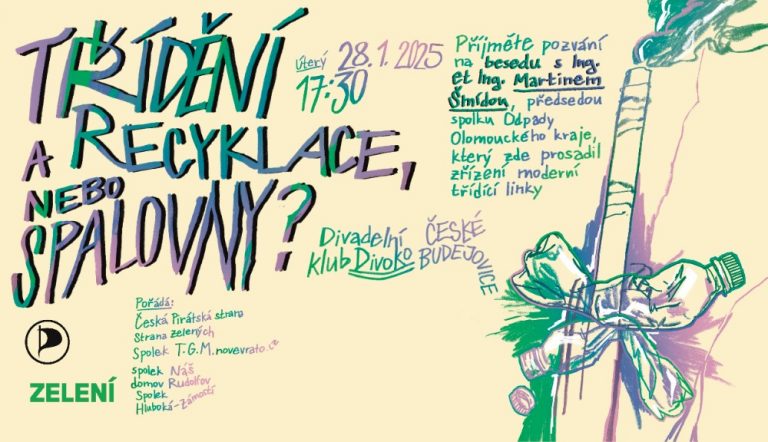 TŘÍDĚNÍ
A RECYKLACE,
NEBO
SPALOVNY?
Úterý 28.1.2025
17:30
Přijměte pozvání
na besedu s Ing.
et Ing. Martinem
Šmídou, předsedou
spolku Odpady
Olomouckého kraje,
který zde prosadil
zřízení moderní
třídící linky
Divadelní
klub Divoko
ČESKÉ
BUDEJOVICE
Pořádá:
Česká Pirátská strana
Strana zelených
Spolek T.G.M. novevrato.cz
spolek Náš
domov Rudolfov
Spolek
Hluboká-Zámostí
ZELENÍ